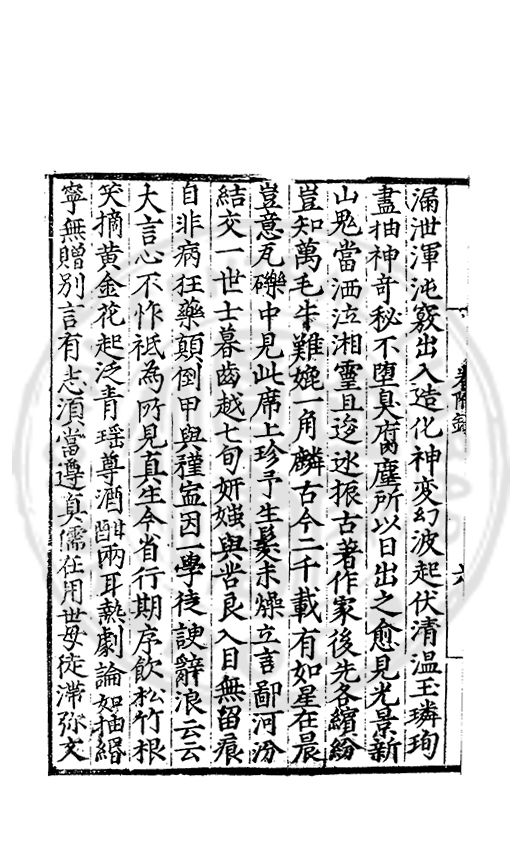 漏泄渾沌竅出入造化神變幻波起伏清温玉璘珣
盡抽神奇秘不墮臭腐塵所以日出之愈見光景新
山鬼當洒泣湘靈且逡巡振古著作家後先各繽紛
豈知萬毛牛難媲一角麟古今二千載有如星在晨
豈意瓦礫中見此席上珍予生髮未燥立言鄙河汾
結交一世士暮齒越七旬妍媸與苦良入目無留痕
自非病狂藥顛倒甲與穜寍因一學徒諛辭浪云云
大言心不怍祗為所見真生今省行期序飲松竹根
笑摘黄金花起泛青瑶尊酒酣兩耳熱劇論如抽緡
寧無贈别言有志湏當遵真儒在用世毋徒滯弥文
卷附錄
六